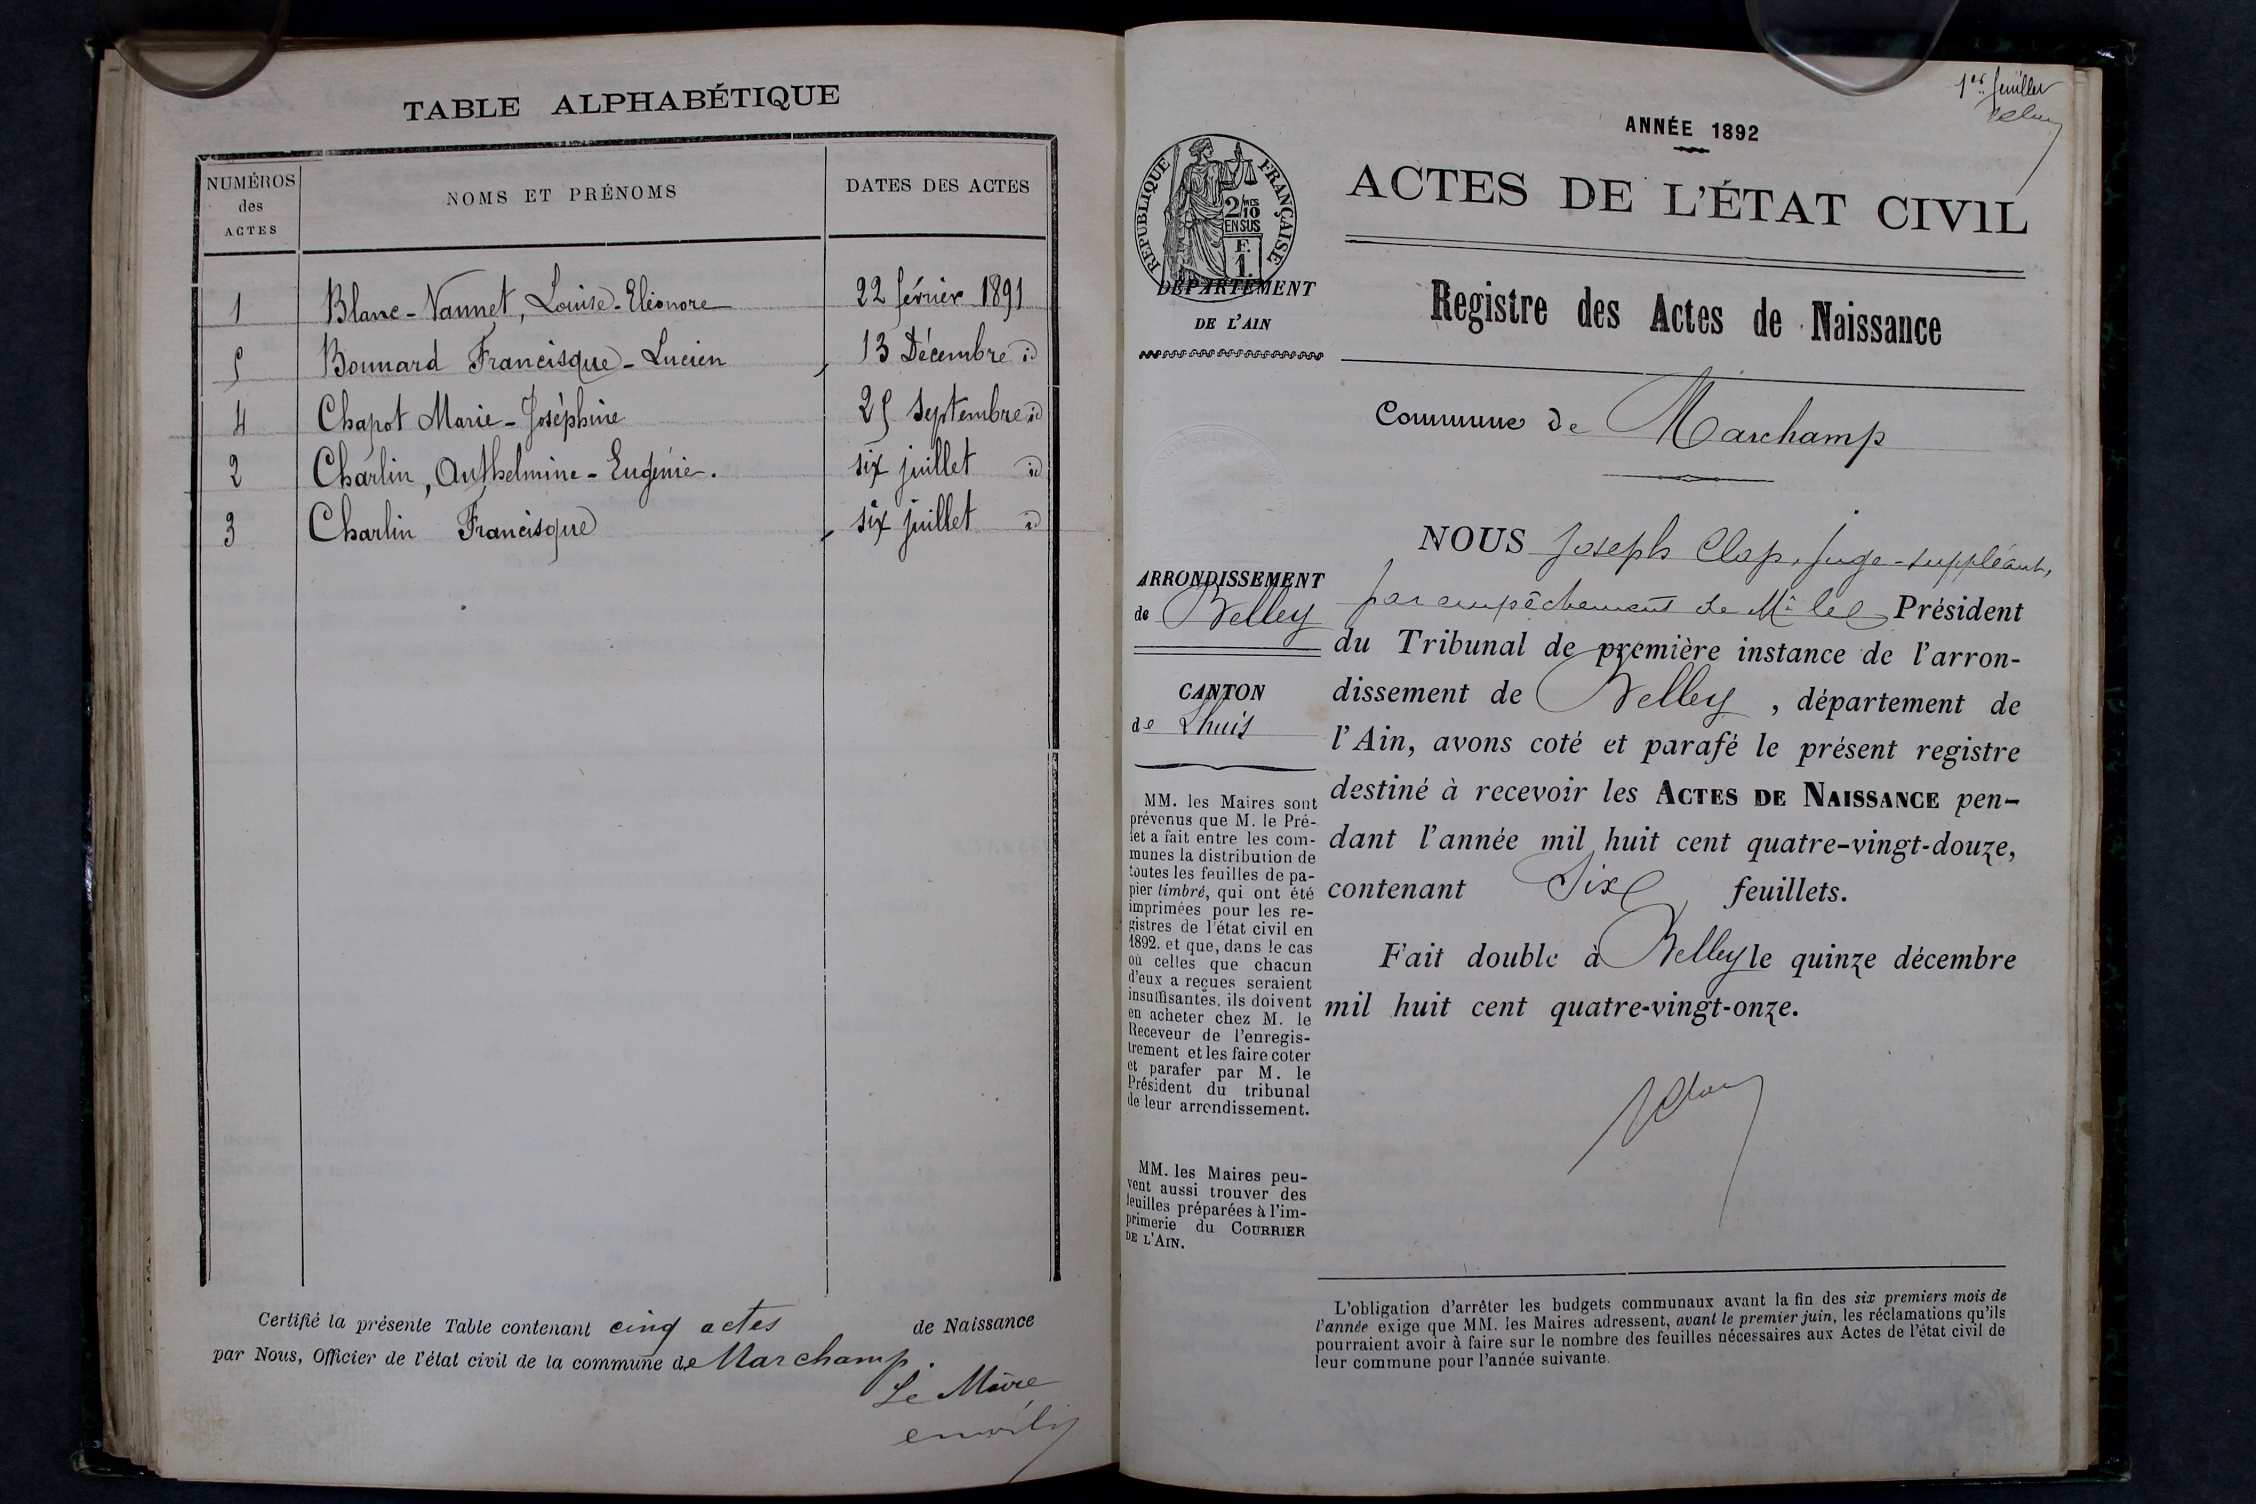 TABLE ALPHABÉTIQUE
NUMÉROS
des
ACTES
NOMS ET PRÉNOMS
DATES DES ACTES
1 Blanc-Vannet, Louise-Eléonore 22 février 1891
5 Bonnard Francisque-Lucien, 13 Décembre id
4 Chapot Marie-Joséphine 25 septembre id
2 Charlin, Anthelmine-Eugénie. six juillet id
3 Charlin Francisque, six juillet id
Certifié la présente Table contenant cinq actes de Naissance
par Nous, Officier de l'état civil de la commune de Marchamp.
Le Maire
1er feuillet
ANNÉE 1892
RÉPUBLIQUE FRANÇAISE
2/10MES
EN SUS
F.
1.
ACTES DE L'ÉTAT CIVIL
DÉPARTEMENT
DE L'AIN
Registre des Actes de Naissance
Commune de Marchamp
ARRONDISSEMENT
de Belley
CANTON
de Lhuis
MM. les Maires sont
prévenus que M. le Pré-
fet a fait entre les com-
munes la distribution de
toutes les feuilles de pa-
pier timbré, qui ont été
imprimées pour les re-
gistres de l'état civil en
1892. et que, dans le cas
où celles que chacun
d'eux a reçues seraient
insuffisantes, ils doivent
en acheter chez M. le
Receveur de l'enregis-
trement et les faire coter
et parafer par M. le
Président du tribunal
de leur arrondissement.
MM. les Maires peu-
vent aussi trouver des
feuilles préparées à l'im-
primerie du COURRIER
DE L'AIN.
NOUS Joseph Clap, juge-suppléant,
par empêchement de Mr le Président
du Tribunal de première instance de l'arron-
dissement de Belley, département de
l'Ain, avons coté et parafé le présent registre
destiné à recevoir les ACTES DE NAISSANCE pen-
dant l'année mil huit cent quatre-vingt-douze,
contenant Six feuillets.
Fait double à Belley le quinze décembre
mil huit cent quatre-vingt-onze.
L'obligation d'arrêter les budgets communaux avant la fin des six premiers mois de
l'année exige que MM. les Maires adressent, avant le premier juin, les réclamations qu'ils
pourraient avoir à faire sur le nombre des feuilles nécessaires aux Actes de l'état civil de
leur commune pour l'année suivante.